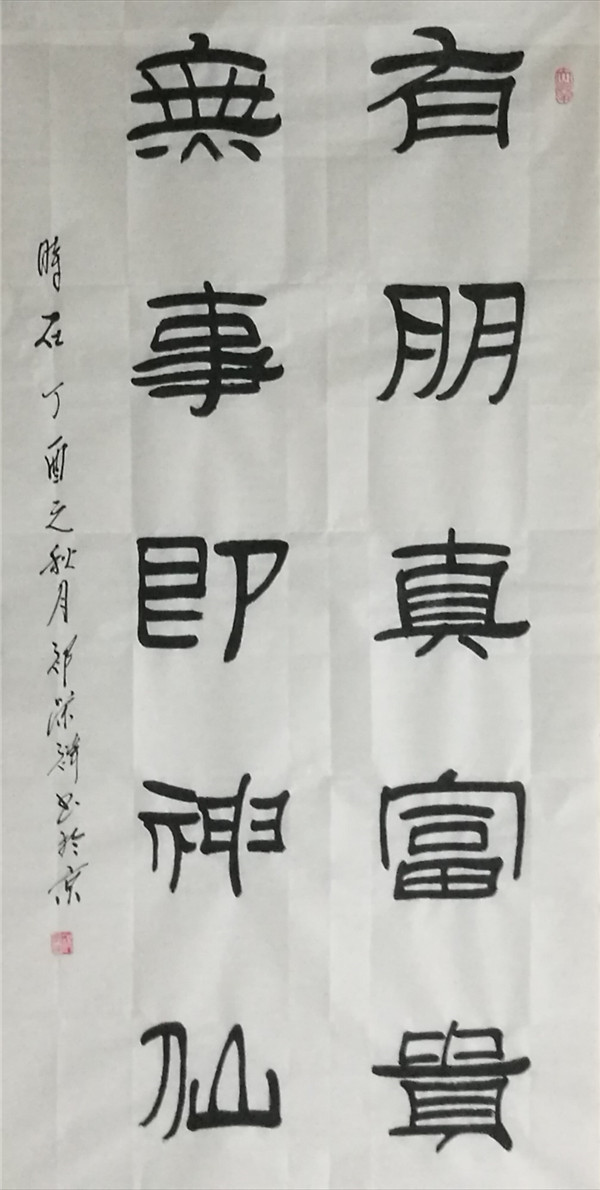 有朋真富貴
無事即神仙
時在丁酉之秋月祁深濤書於京